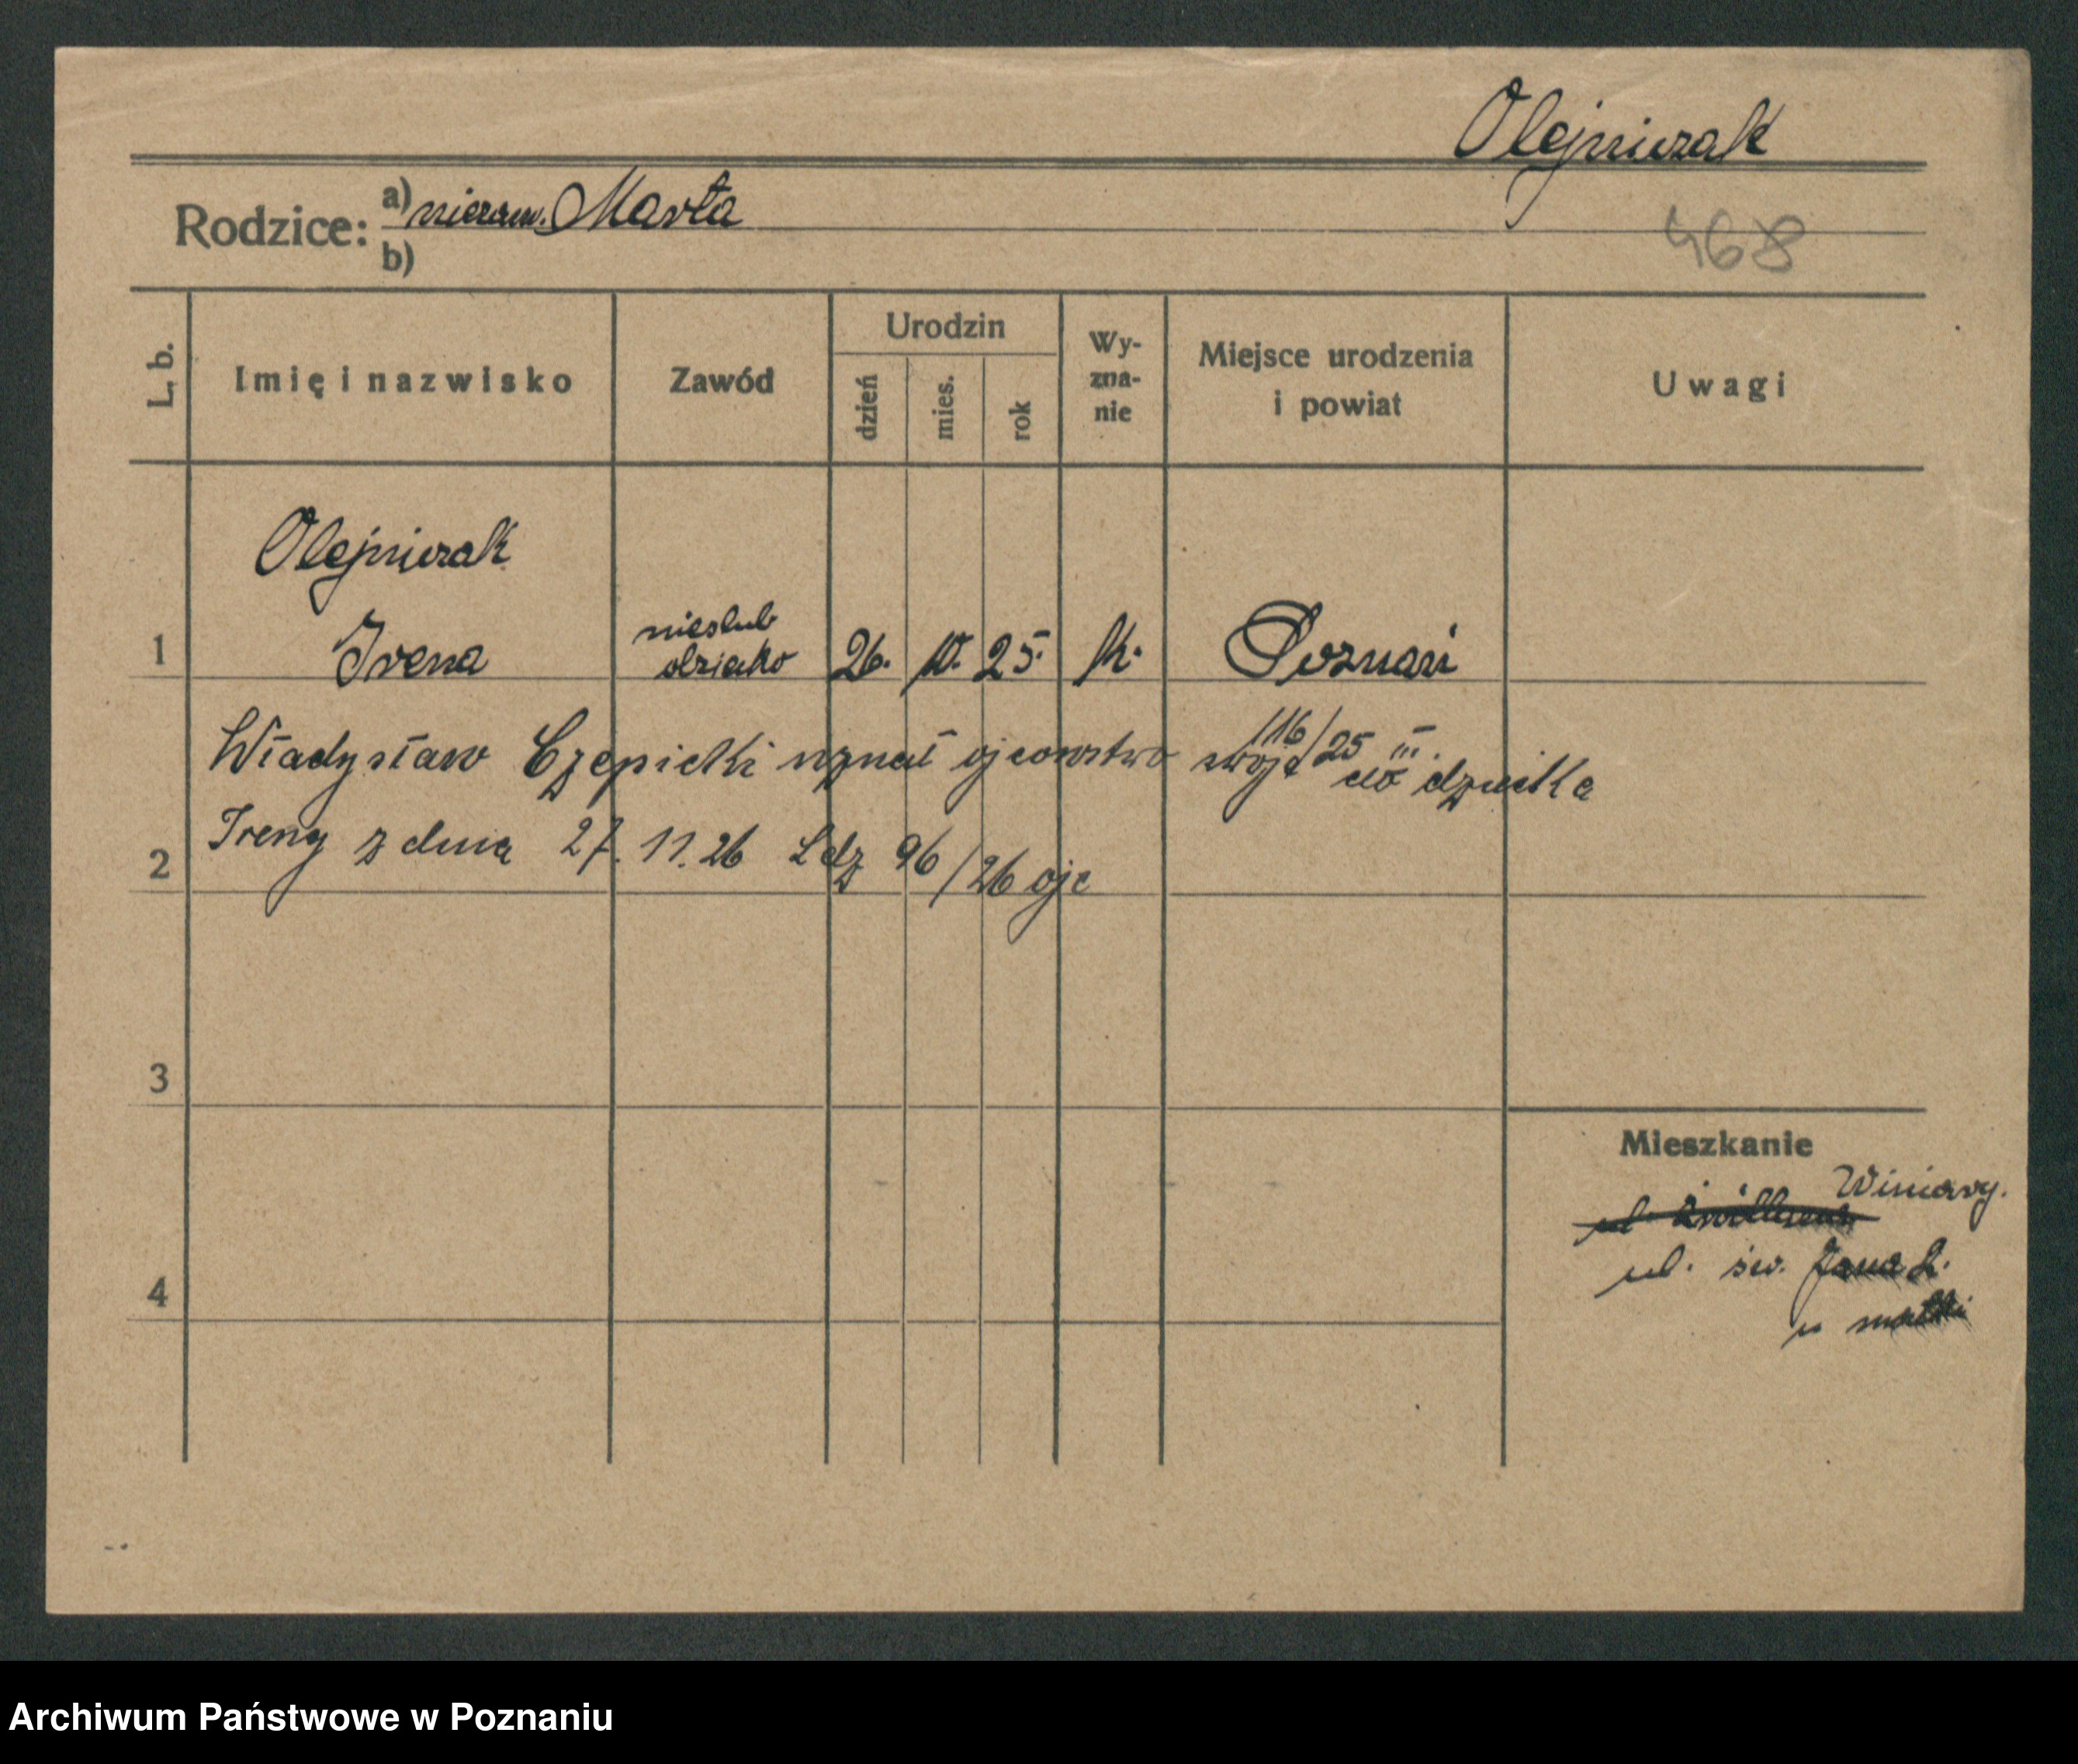 Olejniczak
Rodzice: a) niezam. Marta
b)
468
L. b. Imię i nazwisko Zawód Urodzin dzień mies. rok Wy-zna-nie Miejsce urodzenia i powiat Uwagi
Olejniczak
1 Irena nieślub dziecko 26. 25. k. Poznań
116/25 III.
Władysław Czepicki uznał ojcowstwo swoje do dziecka
2 Ireny z dnia 27. 11. 26 Ldz 96/26 ojc
3
Mieszkanie
Winiary.
ul.
ul. św. Jana 2.
4
u matki
Archiwum Państwowe w Poznaniu